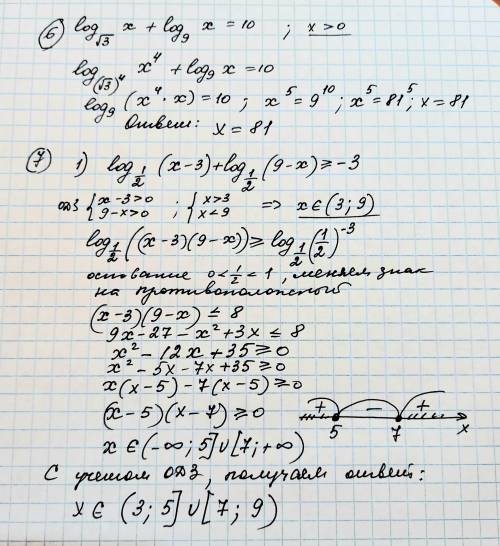 ⑥ log_{√3} x + log_9 x = 10 ; x > 0
log_{(√3)^4} x^4 + log_9 x = 10
log_9 (x^4 · x) = 10 ; x^5 = 9^{10} ; x^5 = 81^5 ; x = 81
Ответ: x = 81
⑦ 1) log_{1/2} (x-3) + log_{1/2} (9-x) ≥ -3
ОДЗ { x-3>0 9-x>0 ; { x>3 x<9 => x∈(3; 9)
log_{1/2} ((x-3)(9-x)) ≥ log_{1/2} (1/2)^{-3}
основание 0 < 1/2 < 1, меняем знак
на противоположный
(x-3)(9-x) ≤ 8
9x - 27 - x² + 3x ≤ 8
x² - 12x + 35 ≥ 0
x² - 5x - 7x + 35 ≥ 0
x(x-5) - 7(x-5) ≥ 0
(x-5)(x-7) ≥ 0
+ − +
5 7 x
x ∈ (-∞; 5] ∪ [7; +∞)
С учетом ОДЗ, получаем ответ:
x ∈ (3; 5] ∪ [7; 9)